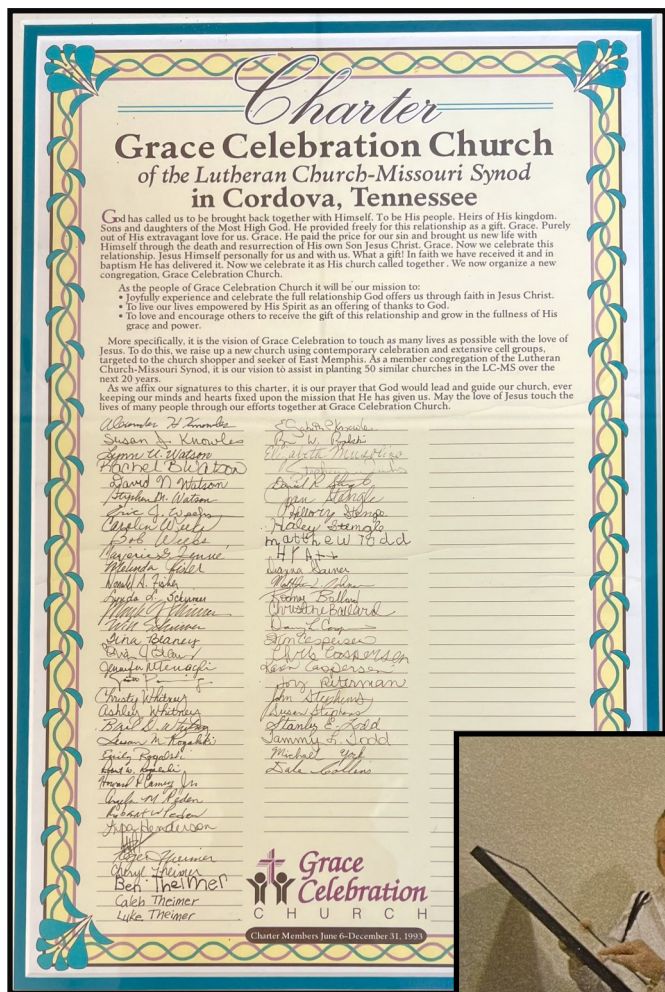 Charter
Grace Celebration Church
of the Lutheran Church-Missouri Synod
in Cordova, Tennessee
God has called us to be brought back together with Himself. To be His people. Heirs of His kingdom.
Sons and daughters of the Most High God. He provided freely for this relationship as a gift. Grace. Purely
out of His extravagant love for us. Grace. He paid the price for our sin and brought us new life with
Himself through the death and resurrection of His own Son Jesus Christ. Grace. Now we celebrate this
relationship. Jesus Himself personally for us and with us. What a gift! In faith we have received it and in
baptism He has delivered it. Now we celebrate it as His church called together. We now organize a new
congregation, Grace Celebration Church.
As the people of Grace Celebration Church it will be our mission to:
• Joyfully experience and celebrate the full relationship God offers us through faith in Jesus Christ.
• To live our lives empowered by His Spirit as an offering of thanks to God.
• To love and encourage others to receive the gift of this relationship and grow in the fullness of His
grace and power.
More specifically, it is the vision of Grace Celebration to touch as many lives as possible with the love of
Jesus. To do this, we raise up a new church using contemporary celebration and extensive cell groups,
targeted to the church shopper and seeker of East Memphis. As a member congregation of the Lutheran
Church-Missouri Synod, it is our vision to assist in planting 50 similar churches in the LC-MS over the
next 20 years.
As we affix our signatures to this charter, it is our prayer that God would lead and guide our church, ever
keeping our minds and hearts fixed upon the mission that He has given us. May the love of Jesus touch the
lives of many people through our efforts together at Grace Celebration Church.
Knowles
Susan J. Knowles
Lynn U. Watson
Rachel B Watson
David N Watson
Stephen Dr. Watson
Eric J. Weeks
Carolyn Weeks
Bob Weeks
Melinda Fisher
Donald A. Fisher
Lynda L. Schirmer
Tina Blaney
Jennifer
Christy Whitney
Ashley Whitney
Susan M. Rogalski
Emily Rogalski
Angela M Peden
Robert W Peden
Lisa Henderson
Roger Theimer
Cheryl Theimer
Ben Theimer
Caleb Theimer
Luke Theimer
Elizabeth
Jan Stengle
Hillory
Haley Stengle
matthew Todd
Christine Ballard
Chris Caspersen
Leon Caspersen
Joy Reterman
John Stephens
Susan Stephens
Stanley E. Todd
Tammy L. Todd
Michael York
Dale Collens
Grace
Celebration
CHURCH
Charter Members June 6-December 31, 1993